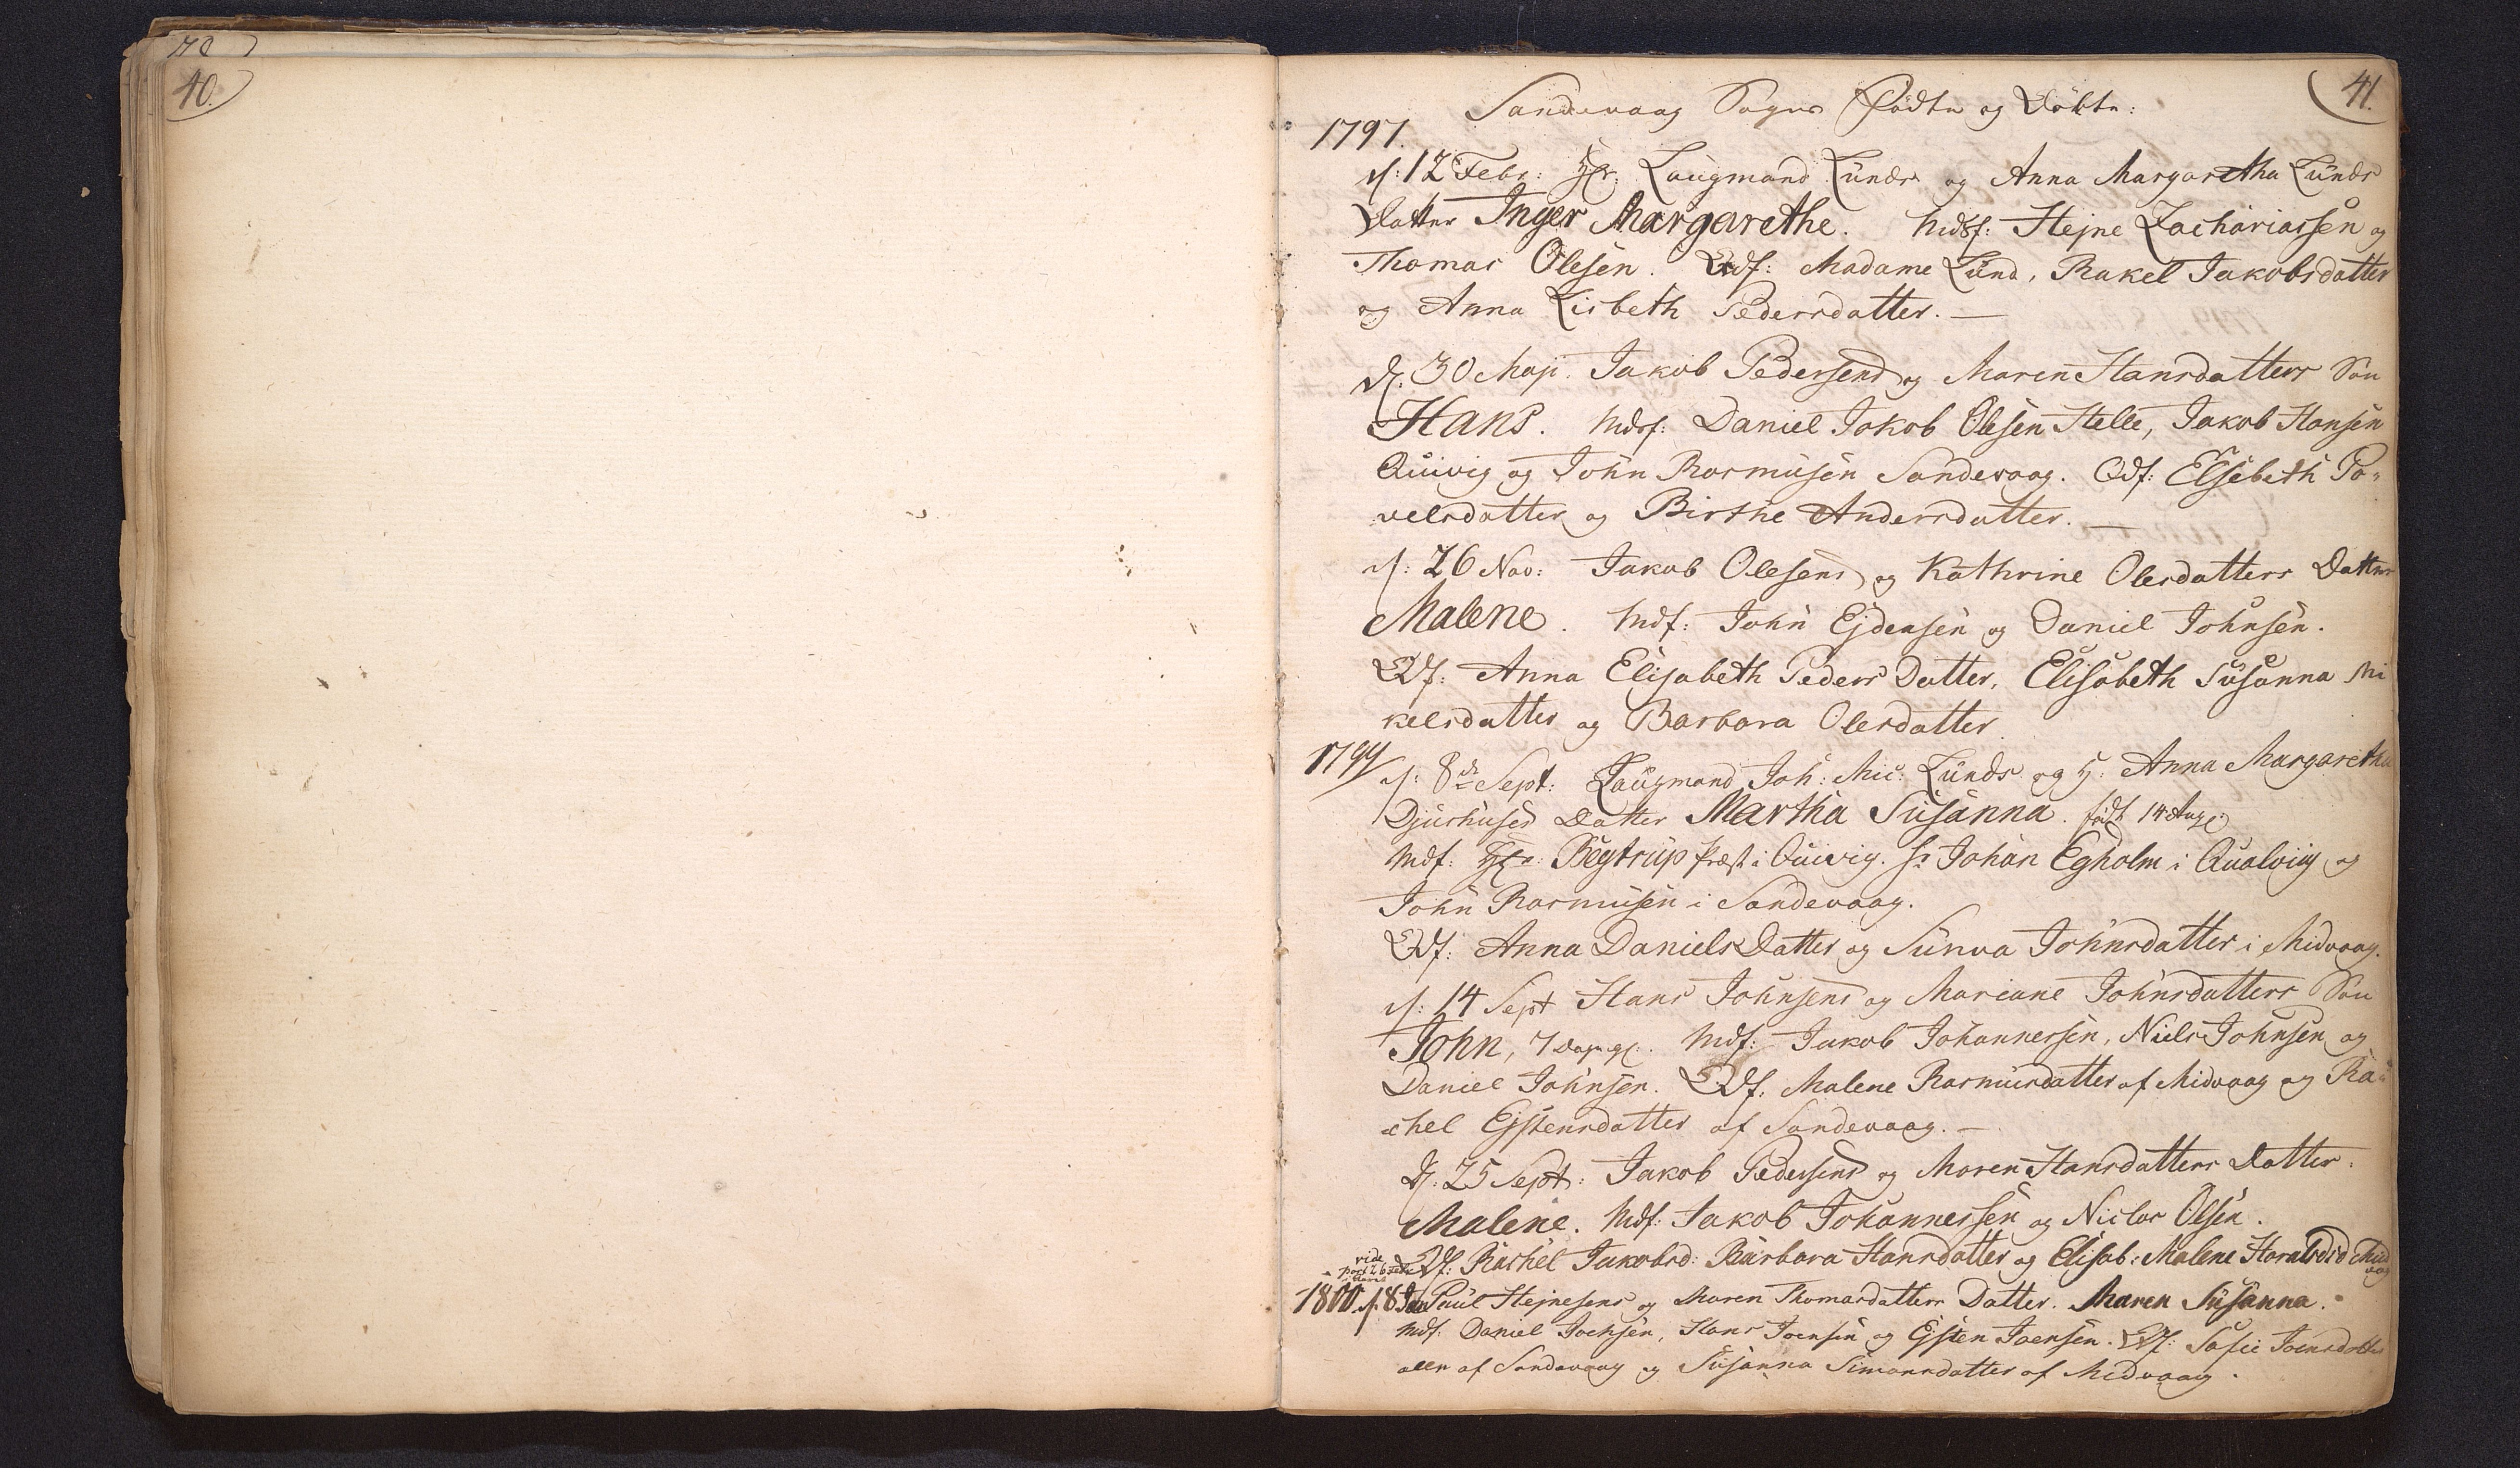 40.
41.
Sandevaag Sogns Fødte og Døbte:
1797.
d: 12 Febr: Hr: Laugmand Lunds og Anna Margaretha Lunds
Datter Inger Margarethe. Mdf: Hejne Zachariassen og
Thomas Olesen. Qdf: Madame Lund, Rakel Jakobsdatter
og Anna Lisbeth Pedersdatter. —
d. 30 Maji. Jakob Pedersens og Maren Hansdatters Søn
Hans. Mdf: Daniel Jakob Olesen Helle, Jakob Hansen
Quivig og John Rasmusen Sandevaag. Qdf: Elsebeth Po=
velsdatter og Birthe Andersdatter. —
d: 26 Nov: Jakob Olesens og Kathrine Olesdatters Datter
Malene. Mdf: John Ejdensen og Daniel Johnsen.
Qdf: Anna Elisabeth Peders Datter, Elisabeth Susanna Mi
kelsdatter og Barbara Olesdatter.
1799
d: 8de Sept: Laugmand Joh: Mic: Lunds og H: Anna Margaretha
Djurhuses Datter Martha Susanna. født 14 Aug:
Mdf: Hr: Begtrup Præst i Quivig. Sr Johan Egholm i Qualviig og
John Rasmusen i Sandevaag.
Qdf: Anna Daniels Datter og Sunva Johnsdatter i Midvaag.
d: 14 Sept Hans Johnsens og Mariane Johnsdatters Søn
John, 7 Dage gl. Mdf: Jakob Johannessen, Niels Johnsen og
Daniel Johnsen. Qdf: Malene Rasmusdatter af Midvaag og Ra=
chel Ejstensdatter af Sandevaag. —
d. 25 Sept: Jakob Pedersens og Maren Hansdatters Datter:
Malene. Mdf: Jakob Johannessen og Niclas Olsen.
vide
Qdf: Rachel Jakobsd: Barbara Hansdatter og Elisab: Malene Haraldsd Mid
vaag
1800 d. 8 Jan Paul Hejnesens og Maren Thomasdatters Datter. Maren Susanna.
Mdf: Daniel Joensen, Hans Joensen og Ejsten Joensen. Qdf: Sofie Joensdatter
alle af Sandevaag og Susanna Simonsdatter af Midvaag.